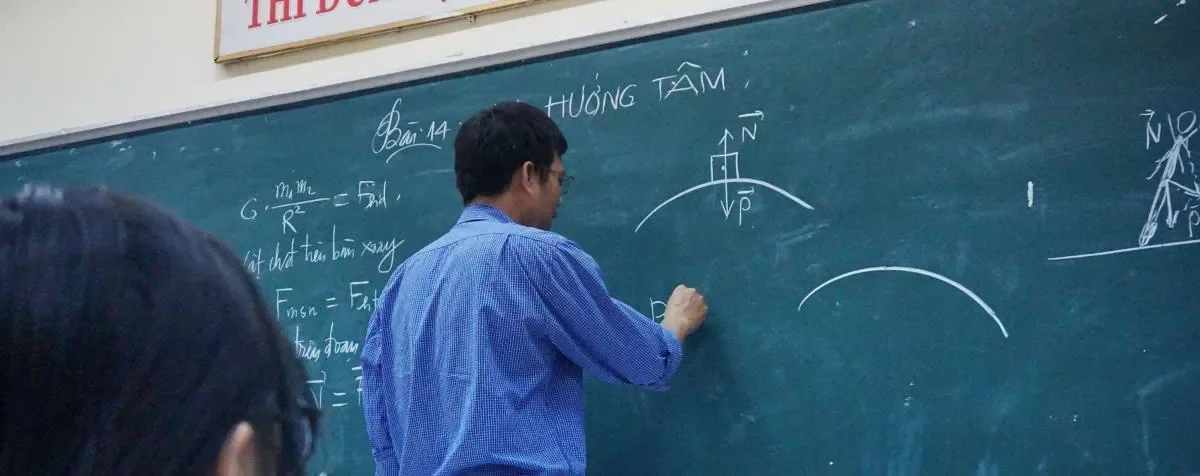 THI Đ
Bài 14
HƯỚNG TÂM
G. m₁m₂ / R² = Fhd.
trên bàn xoay
Fmsn = Fht
trên đoạn
N =
N
P
P
N
P